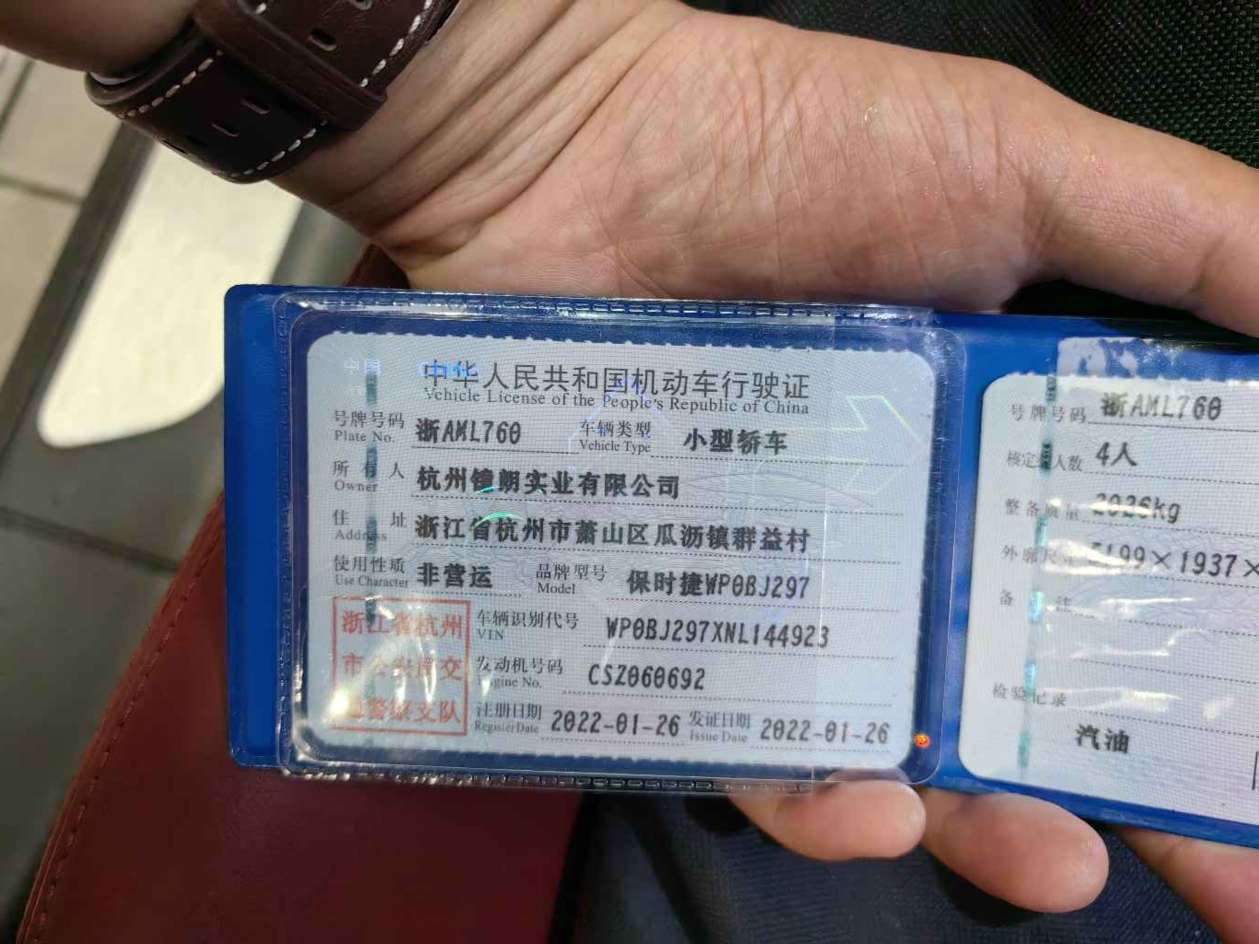 中华人民共和国机动车行驶证
Vehicle License of the People's Republic of China
号牌号码 浙AML760 车辆类型 小型轿车
Plate No. Vehicle Type
所有人 杭州锽朗实业有限公司
Owner
住址 浙江省杭州市萧山区瓜沥镇群益村
Address
使用性质 非营运 品牌型号 保时捷WP0BJ297
Use Character Model
车辆识别代号 WP0BJ297XNL144923
VIN
发动机号码 CSZ060692
Engine No.
注册日期 2022-01-26 发证日期 2022-01-26
Register Date Issue Date
浙江省杭州
市公安局交
通警察支队
号牌号码 浙AML760
核定载人数 4人
整备质量 2026kg
外廓尺寸 5199×1937×
备注
检验记录
汽油